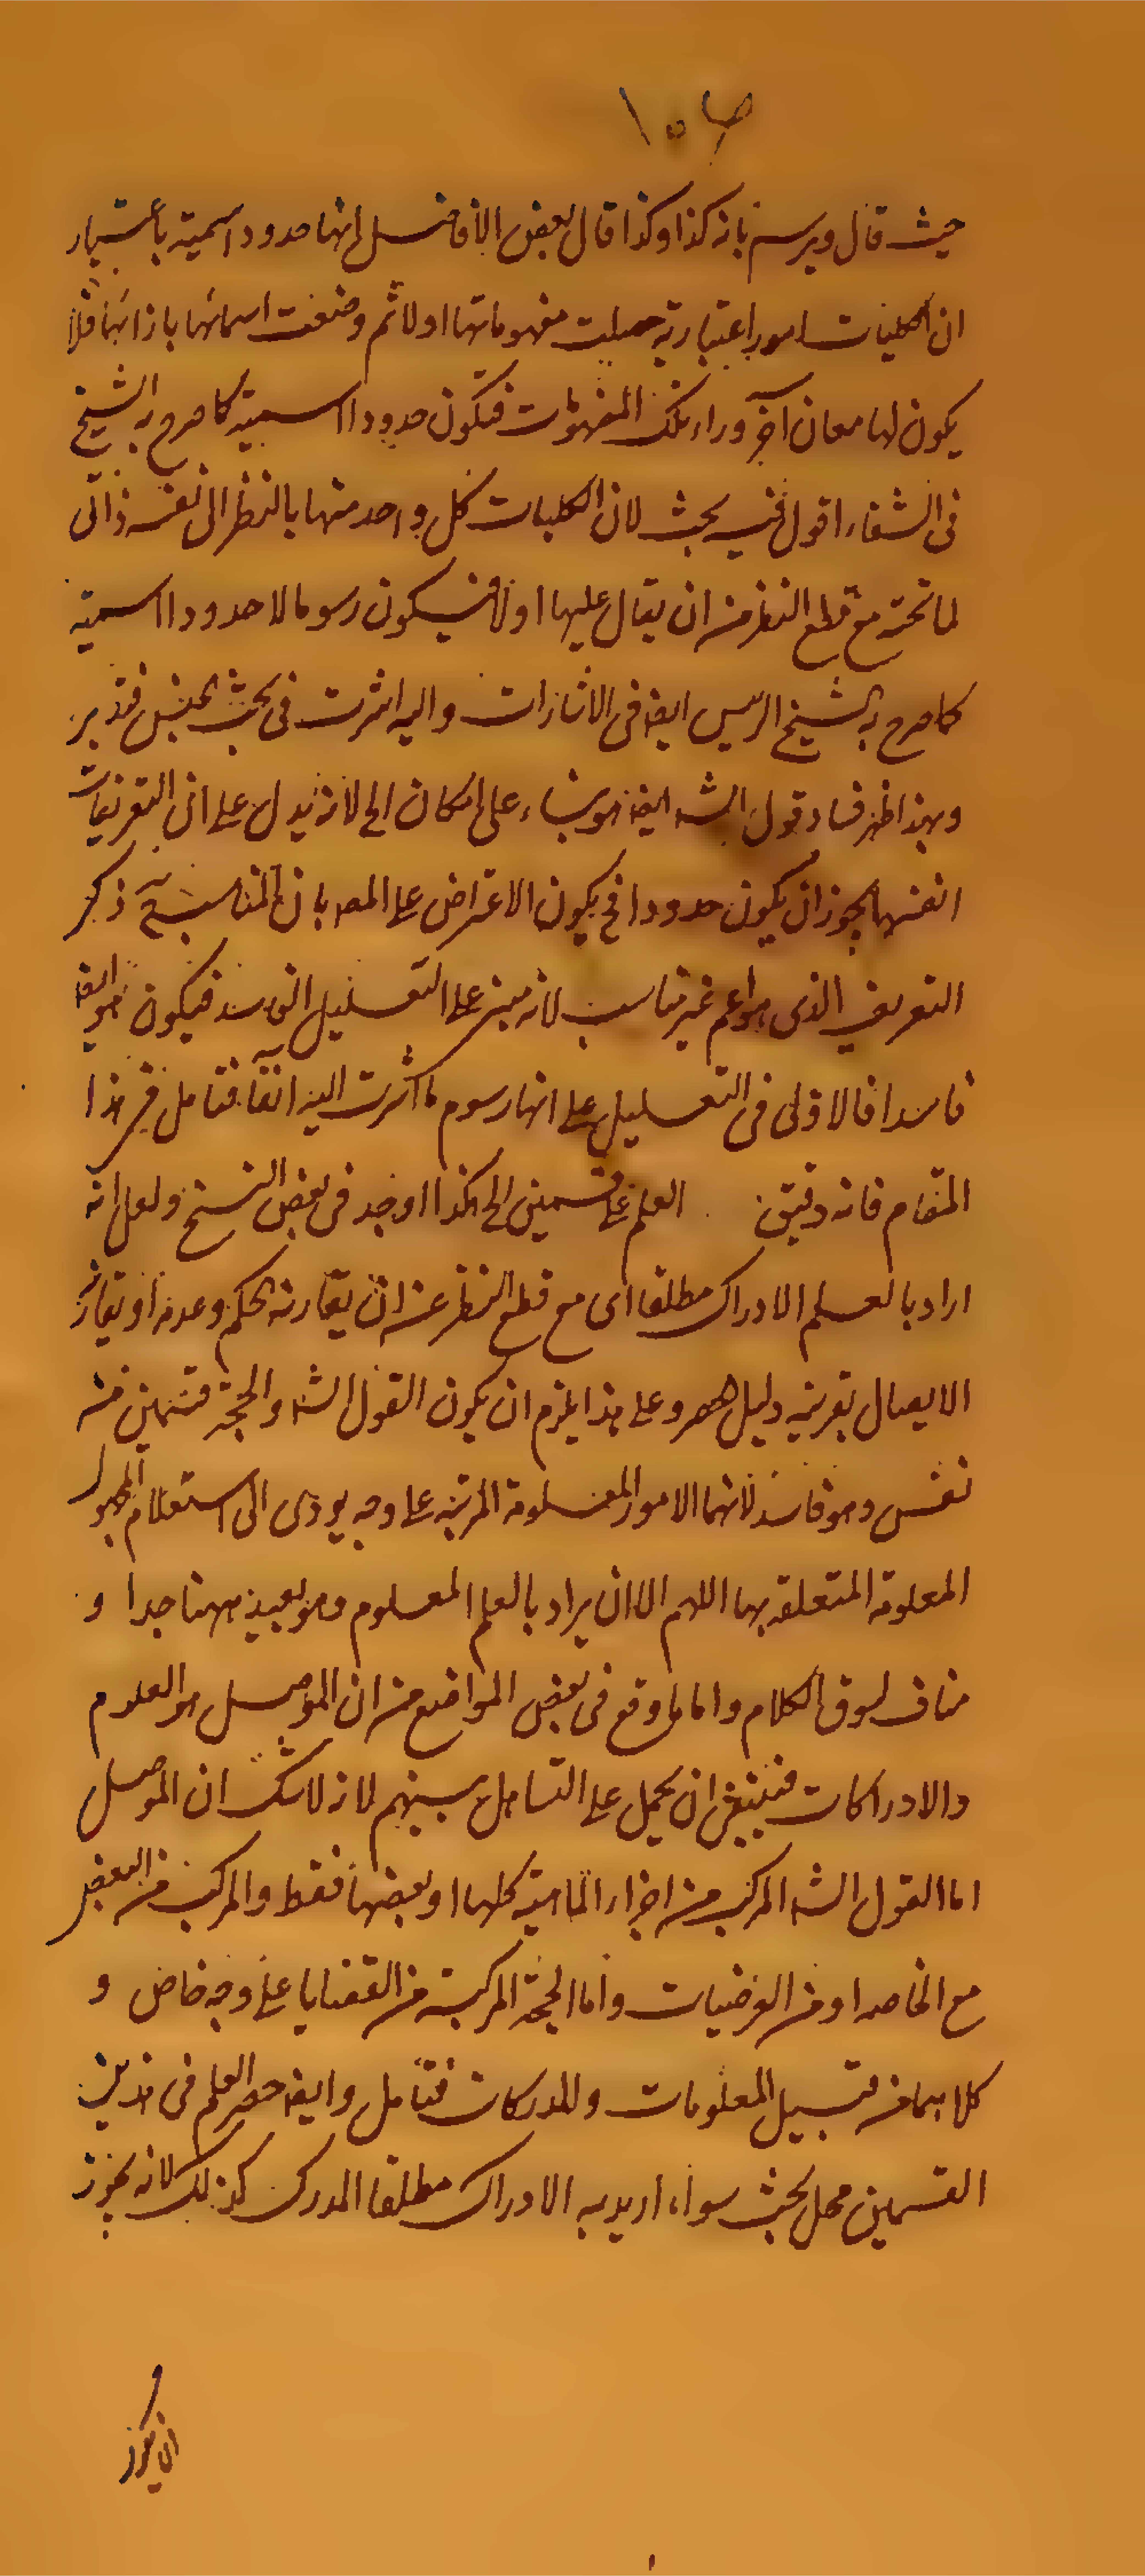 حيث قال ويرسم بانه كذا وكذا قال بعض الافاضل انها حدود اسمية باعتبار
ان الكليات امور اعتبارية حصلت مفهوماتها اولا ثم وضعت اسمائها بازائها فلا
يكون لها معان آخر وراء تلك المفهومات فتكون حدودا اسمية كما صرح به الشيخ
فى الشفاء اقول فيه بحث لان الكليات كل واحد منها بالنظر الى نفسه ذاتى
لما تحته مع قطع النظر من ان يقال عليها اولا فيكون رسوما لا حدودا اسمية
كما صرح به الشيخ الرئيس ايضا فى الاشارات واليه اشرت فى بحث الجنس فتدبر
وبهذا ظهر فساد قول الشه ايضا هو بناء على امكان الى لانه يدل على ان التعريفات
انفسها يجوز ان يكون حدودا فح يكون الاعتراض على المصه بان المناسبة ذكر
التعريف الذى هو اعم غير مناسب لانه مبنى على التعليل الفاسد فيكون هو ايضا
فاسدا فالاولى فى التعليل على انها رسوم ما اشرت اليه انفا فتامل فى هذا
المقام فانه دقيق العلم على قسمين الى هكذا وجد فى بعض النسخ ولعل انه
اراد بالعلم الادراك مطلقا اى مع قطع النظر عن ان يقارنه الحكم وعدمه او يقارن
الايصال بقرينة دليل حصر وعلى هذا يلزم ان يكون القول الشه والحجة قسمين من
نفس وهو فاسد لانهما الامور المعلومة المرتبة على وجه يودى الى استعلام المجهول
المعلومة المتعلقة بها اللهم الا ان يراد بالعلم المعلوم وهو بعيد ههنا جدا و
مناف لسوق الكلام واما ما وقع فى بعض المواضع من ان الموصل هو العلوم
والادراكات فينبغى ان يحمل على التساهل بينهم لانه لا شك ان الموصل
اما القول الشه المركب من اجزاء الماهية كلها او بعضها فقط والمركب من البعض
مع الخاصه او من العرضيات واما الحجة المركبة من القضايا على وجه خاص و
كلاهما من قبيل المعلومات والمدركات فتامل وايضا حصر العلم فى هذين
القسمين محل بحث سواء اريد به الادراك مطلقا المدرك كذلك لانه يجوز